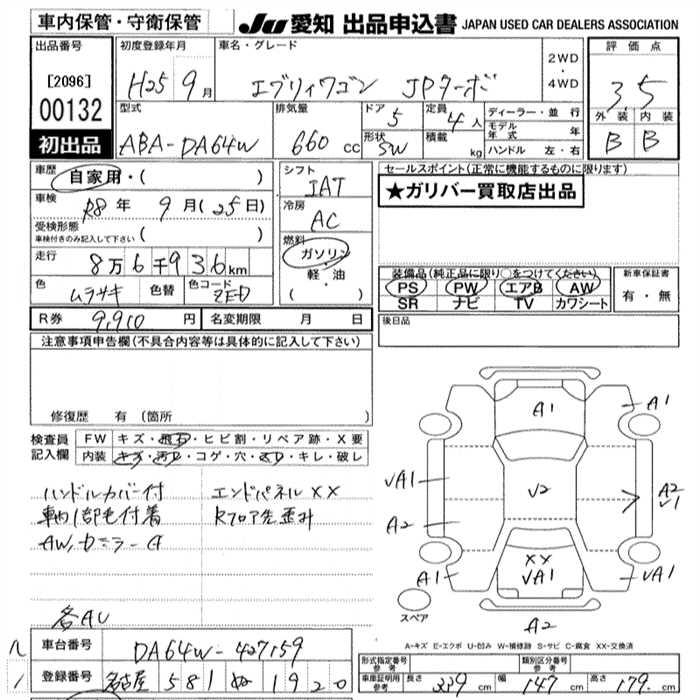 車内保管・守衛保管
JU 愛知 出品申込書 JAPAN USED CAR DEALERS ASSOCIATION
出品番号
[2096]
00132
初出品
初度登録年月
H25 9月
車名・グレード
エブリィワゴン JPターボ
2WD
・
4WD
評価点
3.5
外装 内装
B B
型式
ABA-DA64W
排気量
660 cc
ドア
5
形状
SW
定員
4人
積載
kg
ディーラー・並行
モデル年式 年
ハンドル 左・右
車歴
自家用・( )
車検
R8年 9月(25日)
受検形態
車検付きのみ記入して下さい ( )
走行
8万6千936km
色
ムラサキ
色替
色コード
ZED
シフト
IAT
冷房
AC
燃料
ガソリン
・
軽・油
( )
セールスポイント(正常に機能するものに限ります)
★ガリバー買取店出品
装備品(純正品に限り○をつけてください)
PS PW エアB AW
SR ナビ TV カワシート
新車保証書
有・無
R券 9,910 円 名変期限 月 日
後日品
注意事項申告欄(不具合内容等は具体的に記入して下さい)
修復歴 有 (箇所
検査員
記入欄
FW キズ・飛石・ヒビ割・リペア跡・X要
内装 キズ・汚れ・コゲ・穴・スレ・キレ・破レ
ハンドルカバー付
車内1部毛付着
AW,カミラーA
エンドパネルXX
Rフロア先歪み
各AU
A1
A1
VA1
V2
A2
V1
A2
XX
VA1
A1
VA1
A2
スペア
A-キズ E-エクボ U-凹み W-補修跡 S-サビ C-腐食 XX-交換済
車台番号 DA64W-427159
登録番号 名古屋 581 ぬ 1920
型式指定番号
参考
類別区分番号
参考
車庫証明用
参考
長さ 339 cm 幅 147 cm 高さ 179 cm